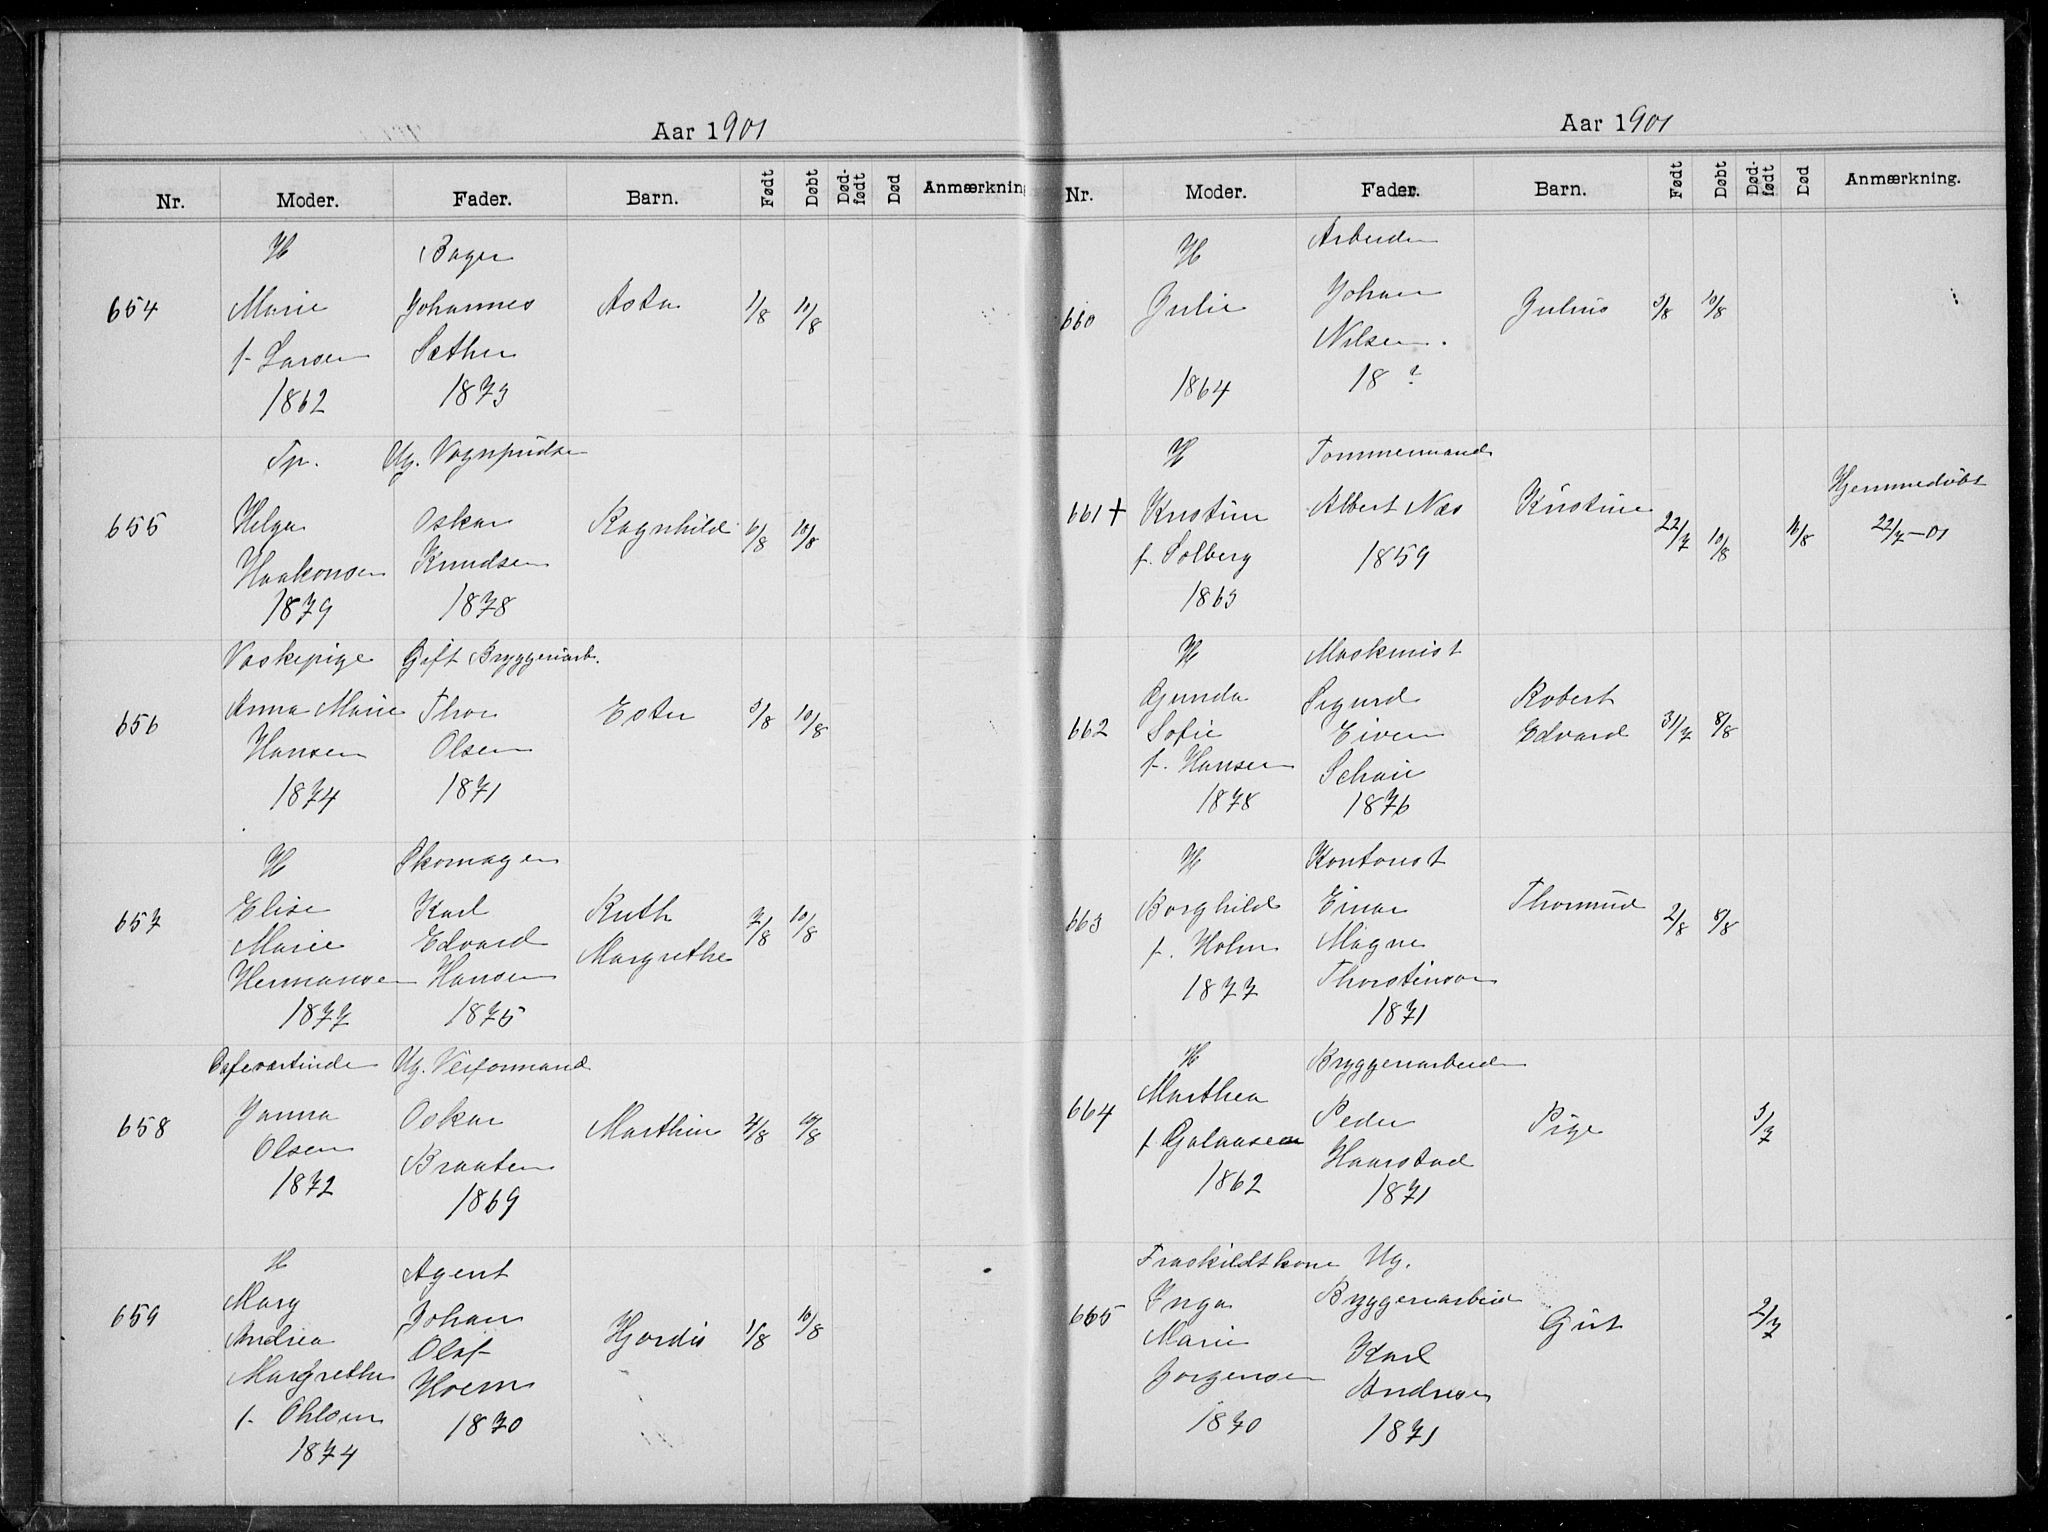 Aar 1901
Nr. Moder. Fader. Barn. Født Døbt Død-født Død Anmærkning
654
H
Marie
f. Larsen
1862
Bager
Johannes
Sæther
1873
Asta 1/8 10/8
655
Tp.
Helga
Haakonsen
1879
Ug. Vognpudser
Oskar
Knudsen
1878
Ragnhild 6/8 10/8
656
Vaskepige
Anna Marie
Hansen
1874
Gift Bryggeriarb.
Thor
Olsen
1871
Ester 3/8 10/8
657
H
Elise
Marie
Hermansen
1877
Skomager
Karl
Edvard
Hansen
1875
Ruth
Margrethe
7/8 10/8
658
Cafeværtinde
Janna
Olsen
1872
Ug. Visformand
Oskar
Braaten
1869
Marthin 4/8 10/8
659
H
Mary
Andrea
Margrethe
f. Ohlsen
1874
Agent
Johan
Olaf
Hoem
1870
Hjordis 1/8 10/8
Aar 1901
Nr. Moder. Fader. Barn. Født Døbt Død-født Død Anmærkning.
660
H
Julie
1864
Arbeider
Johan
Nilsen.
18 ?
Julius 3/8 10/8
661 +
H
Kristine
f. Solberg
1863
Tømmermand
Albert Næs
1859
Kristine 22/7 10/8
Hjemmedøbt
22/7-01
662
H
Gunda
Sofie
f. Hansen
1878
Maskinist
Sigurd
Eiven
Schøie
1876
Robert
Edvard
31/7 8/8
663
H
Borghild
f. Holm
1877
Kontorist
Einar
Magne
Thorstenson
1871
Thormud 2/8 8/8
664
H
Marthea
f. Galaasen
1862
Bryggeriarbeider
Peder
Haarstad
1871
Pige 3/7
665
Fraskildt kone
Inga
Marie
Jørgensen
1870
Ug.
Bryggeriarbeid
Karl
Andresen
1871
Gut 2/7